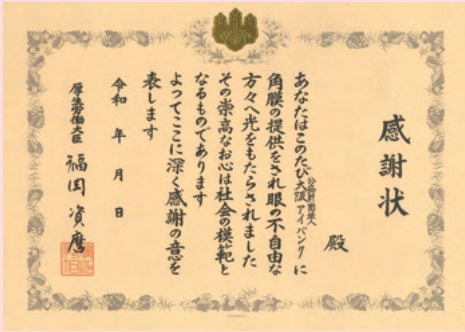 感謝状
殿
あなたはこのたび公益財団法人大阪アイバンクに
角膜の提供をされ眼の不自由な
方々へ光をもたらされました
その崇高なお心は社会の模範と
なるものであります
よってここに深く感謝の意を
表します
令和 年 月 日
厚生労働大臣 福岡資麿